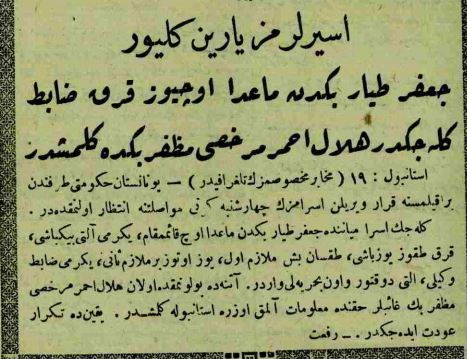 اسیرلرمز یارین کلیور
جعفر طیار بکدن ماعدا اوچیوز قرق ضابط
کله‌جکدر هلال احمر مرخصی مظفر بکده کلمشدر
استانبول : ١٩ ( مخابر مخصوصمزك تلغرافیدر ) — یونانستان حکومتی طرفندن
براقیلمسنه قرار ویریلن اسرامزك چهارشنبه کونی مواصلتنه انتظار اولنمقده‌در .
کله‌جك اسرا میاننده جعفر طیار بکدن ماعدا اوچ قائمقام، یکرمی آلتی بیکباشی،
قرق طقوز یوزباشی، طقسان بش ملازم اول، یوز اوتوز بر ملازم ثانی، یکرمی ضابط
وکیلی، التی دوقتور واون بحریه‌لی واردر . آتنه‌ده بولونمقده اولان هلال احمر مرخصی
مظفر بك غائبلر حقنده معلومات آلمق اوزره استانبوله کلمشدر . یقینده تکرار
عودت ایده‌جکدر . — رفعت